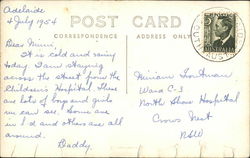 Adelaide
4 July 1954
POST CARD
CORRESPONDENCE
ADDRESS ONLY
Dear Mimi,
It is cold and rainy
today. I am staying
across the street from the
Children's Hospital. There
are lots of boys and girls
we can see. Some are
in bed and others are all
around.
Daddy
Miriam
Ward C-3
North Shore Hospital
Crows Nest
NSW